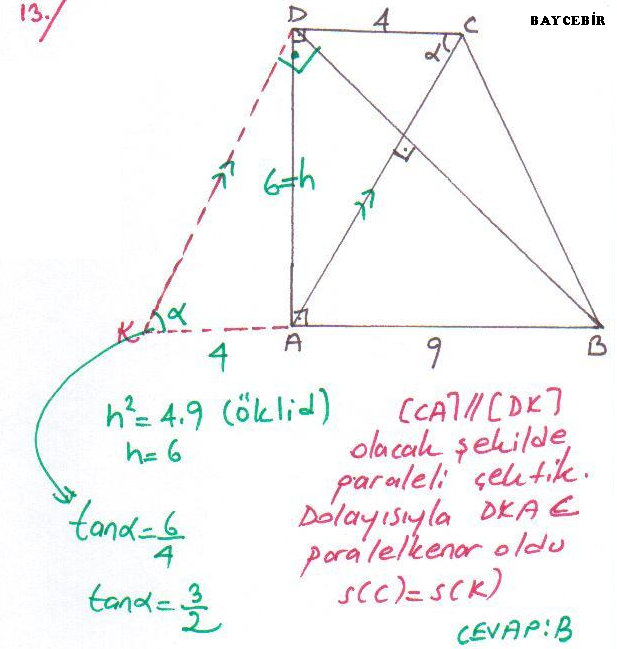 13./
BAYCEBİR
D
4
C
α
6=h
K
α
4
A
9
B
h²=4.9 (öklid)
h=6
tanα=6/4
tanα=3/2
[CA]//[DK]
olacak şekilde
paraleli çektik.
Dolayısıyla DKAC
paralelkenar oldu
s(C)=s(K)
CEVAP:B